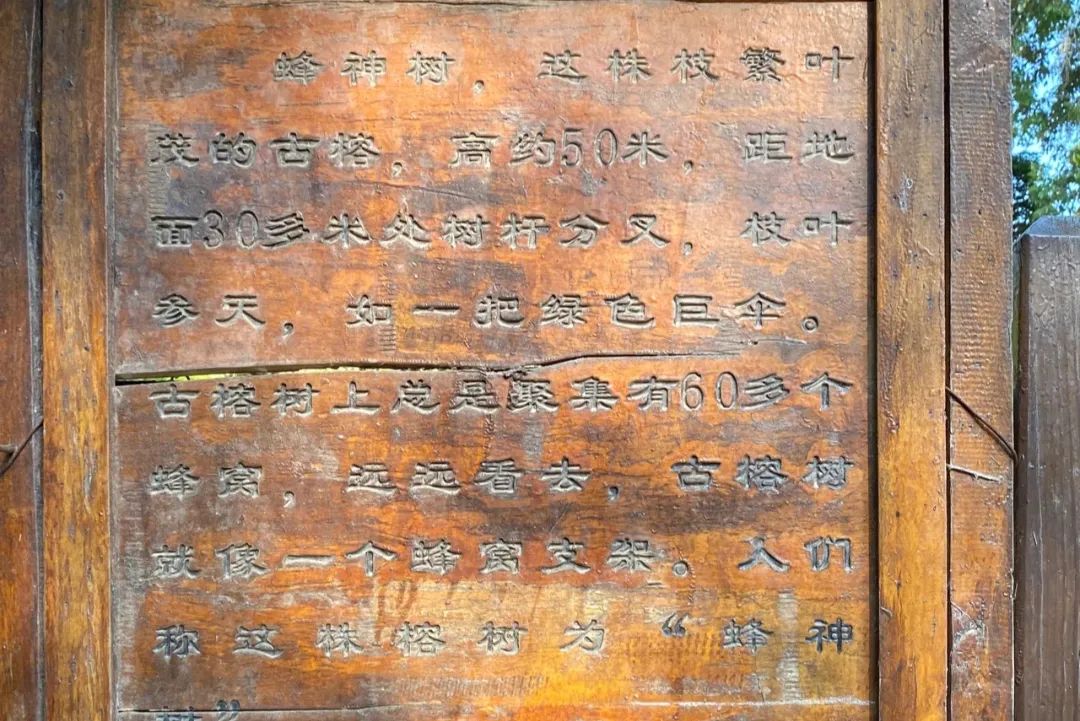 蜂神树，这株枝繁叶
茂的古榕，高约50米，距地
面30多米处树杆分叉，枝叶
参天，如一把绿色巨伞。
古榕树上总是聚集有60多个
蜂窝，远远看去，古榕树
就像一个蜂窝支架。人们
称这株榕树为“蜂神
树”